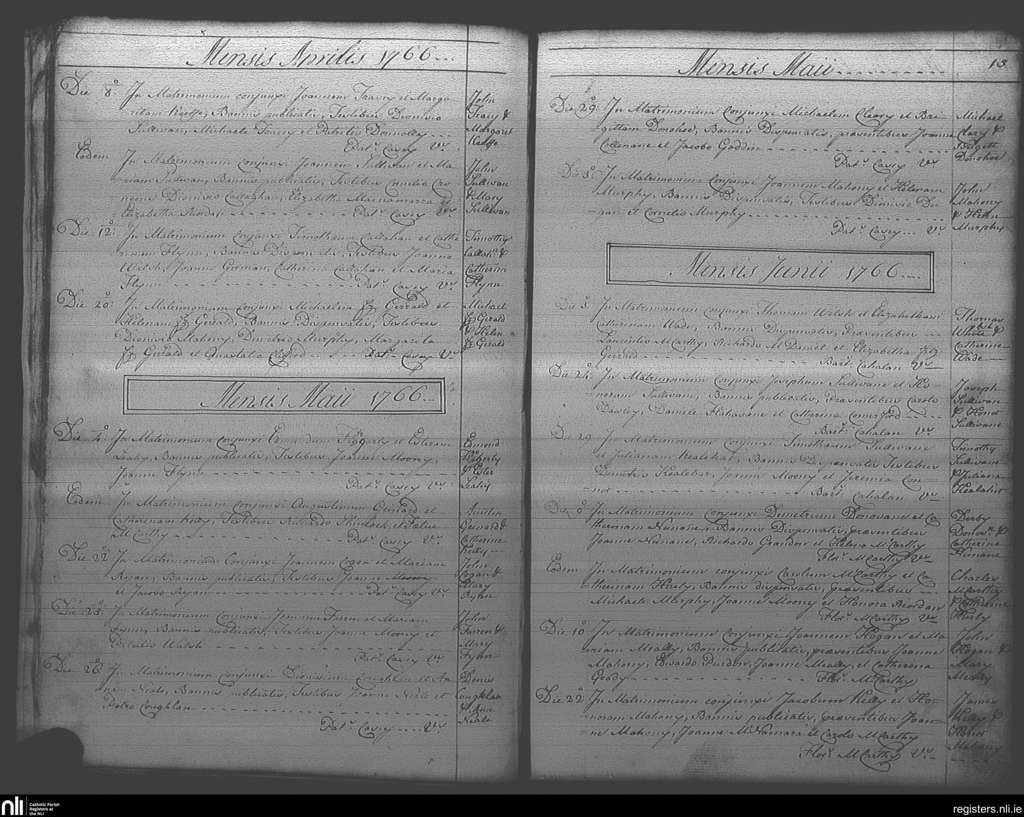 Mensis Aprilis 1766
Die 8º In Matrimonium conjunxi Joannem Tracy et Marga
ritam Keoffe, Bannis publicatis, Testibus Dionisio
Sullivan, Michaele Tracy et Patritio Donnolly
Patr. Casey Vr.
John
Tracy &
Margaret
Keoffe
Eodem In Matrimonium conjunxi Joannem Sullivan et Ma
riam Sullivan, Bannis publicatis, Testibus Cornelio Cro
neene Dionisio Callaghan, Elizabetha et
Elizabetha Riordan
Patr. Casey Vr.
John
Sullivan
& Mary
Sullivan
Die 12º In Matrimonium conjunxi Timothaum Callahan et Cathe
rinam Flynn, Bannis Dispensatis, Testibus Joanne
Welsh, Joanne Gorman, Catherina Callahan et Maria
Flynn Patr. Casey Vr.
Timothy
Callahn. &
Catherine
Flynn
Die 20º In Matrimonium conjunxi Michaelem Fz Gerald et
Helenam Fz Gerald, Bannis Dispensatis, Testibus
Dionisio Mahony, Murphy, Margarita
Fz Gerald et Anastatia Patr. Casey Vr
Michael
Fz Gerald
& Helen
Fz Gerald
Mensis Maii 1766
Die 4º In Matrimonium conjunxi Edmundum Fogarty et Esteram
Leahy, Bannis publicatis, Testibus Joanne Moony,
Joanne Flynn
Patr. Casey Vr
Edmond
Fogarty
& Ester
Leahy
Eodem In Matrimonium conjunxi Augustinum Gerrard et
Catharinam Kiely, Testibus Richardo Thurlock et
McCarthy Patr. Casey Vr.
Austin
Gerrard &
Catherine
Kiely
Die 22º In Matrimonium Conjunxi Joannem Cogan et Mariam
Ryan, Bannis publicatis, Testibus Joanne Moony
et Jacobo Ryan Patr. Casey Vr
John
Cogan &
Mary
Ryan
Die 25º In Matrimonium conjunxi Joannem Farren et Mariam
Flynn, Bannis publicatis, Testibus Joanne Moony et
Patritio Walsh
Patr. Casey Vr
John
Farren &
Mary
Flynn
Die 26º In Matrimonium conjunxi Dionisium Coughlan et An
nam Neale, Bannis publicatis, Testibus Joanne Neale et
Petro Coughlan
Patr. Casey Vr
Denis
Coughlan
& Anne
Neale
Mensis Maii
13
Die 29º In Matrimonium Conjunxi Michaelem Cleary et Bri
gittam Donohoe, Bannis Dispensatis, præsentibus Joanne
Collenane et Jacobo Goddin
Patr. Casey Vr
Michael
Clary &
Bridgett
Donohoe
Die In Matrimonium Conjunxi Joannem Mahony et Helenam
Murphy, Bannis Dispensatis, Testibus Dionisio Di
nan et Cornelio Murphy
Patr. Casey Vr
John
Mahony
& Helen
Murphy
Mensis Junii 1766
Die 3º In Matrimonium conjunxi Thomam Welsh et
Catherinam Wade, Bannis Dispensatis, Præsentibus
McCarthy, Richardo McDaniel et Elizabetha Fitz
Gerard Bart. Cahalan Vr
Thomas
White &
Catharine
Wade
Die 24 In Matrimonium conjunxi Josephum Sullivane et Ho
noram Sullivan, Bannis publicatis, præsentibus Carolo
Dawley, Daniele Flahavane et Catherina Comerford
Bart. Cahalan Vr
Joseph
Sullivan
& Honor
Sullivane
Die 29 In Matrimonium conjunxi Timothaum Sullivane
et Julianam Kealehar, Bannis Dispensatis Testibus
Kealehar, Joanne Moony et Jeremia Con
nor Bart. Cahalan Vr
Timothy
Sullivane
& Juliana
Kealahar
Die 8 In Matrimonium conjunxi Demetrium Donovane et Ca
therinam Nunane, Bannis Dispensatis, præsentibus
Joanne Nunane, Richardo Grandon et Helena McCarthy
Flor. McCarthy Vr
Derby
Donovn. &
Catherine
Nunane
Eodem In Matrimonium conjunxi Carolum McCarthy et Ca
therinam Hurly, Bannis dispensatis, præsentibus
Michaele Murphy, Joanne Moony et Honora Riordan
Flor. McCarthy Vr
Charles
McCarthy
& Catherine
Hurly
Die 10 In Matrimonium conjunxi Joannem Hogan et Ma
riam Meally, Bannis publicatis, præsentibus Joanne
Mahony, Edvardo Purdon, Joanne Meally, et Catherina
Goody Flor. McCarthy
John
Hogan &
Mary
Meally
Die 22º In Matrimonium conjunxi Jacobum Kelly et Ho
noram Mahony, Bannis publicatis, præsentibus Joan
ne Mahony, Joanne McNamara et Carolo McCarthy
Flor. McCarthy Vr
James
Kelly &
Honor
Mahony
nli Catholic Parish
Registers at
the NLI
registers.nli.ie